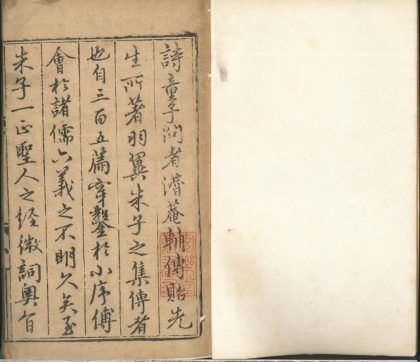 詩童子問者濳菴輔傳貽先
生所著羽翼朱子之集傳者
也自三百五篇穿鑿於小序傅
會於諸儒六義之不明久矣至
朱子一正聖人之經微詞奧旨